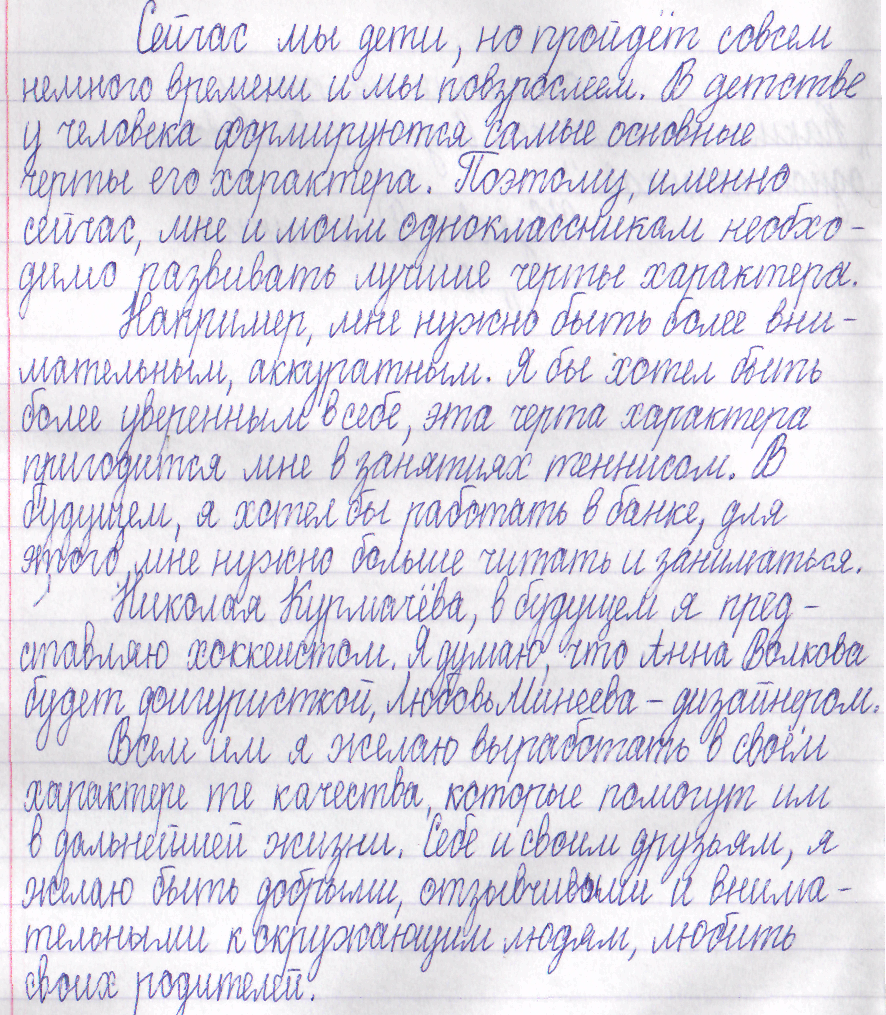 Сейчас мы дети, но пройдёт совсем
немного времени и мы повзрослеем. В детстве
у человека формируются самые основные
черты его характера. Поэтому, именно
сейчас, мне и моим одноклассникам необхо-
димо развивать лучшие черты характера.
Например, мне нужно быть более вни-
мательным, аккуратным. Я бы хотел быть
более уверенным в себе, эта черта характера
пригодится мне в занятиях теннисом. В
будущем, я хотел бы работать в банке, для
этого, мне нужно больше читать и заниматься.
Николая Курмачёва, в будущем я пред-
ставляю хоккеистом. Я думаю, что Анна Волкова
будет фигуристкой, Любовь Минеева - дизайнером.
Всем им я желаю выработать в своём
характере те качества, которые помогут им
в дальнейшей жизни. Себе и своим друзьям, я
желаю быть добрыми, отзывчивыми и внима-
тельными к окружающим людям, любить
своих родителей.